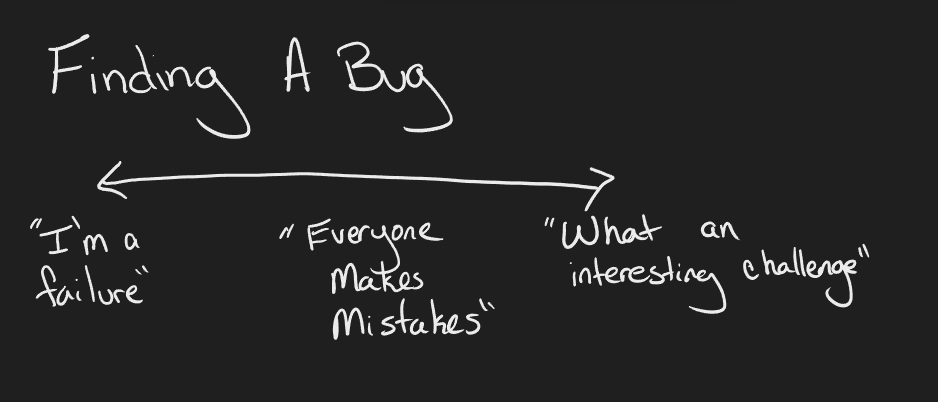 Finding A Bug
"I'm a
failure"
"Everyone
Makes
Mistakes"
"What an
interesting challenge"